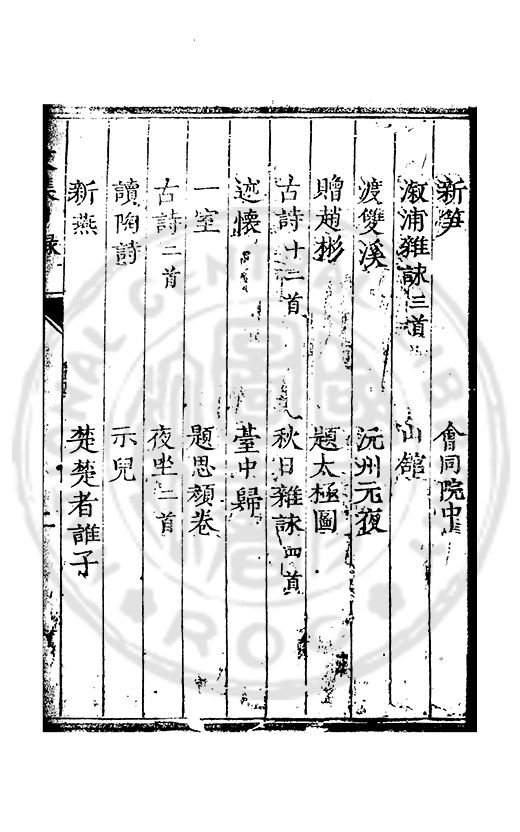 新笋　會同院中
溆浦雜詠三首　山館
渡雙溪　沅州元夜
贈趙彬　題太極圖
古詩十二首　秋日雜詠四首
述懷　臺中歸
一室　題思顏卷
古詩二首　夜坐二首
讀陶詩　示兒
新燕　楚楚者誰子